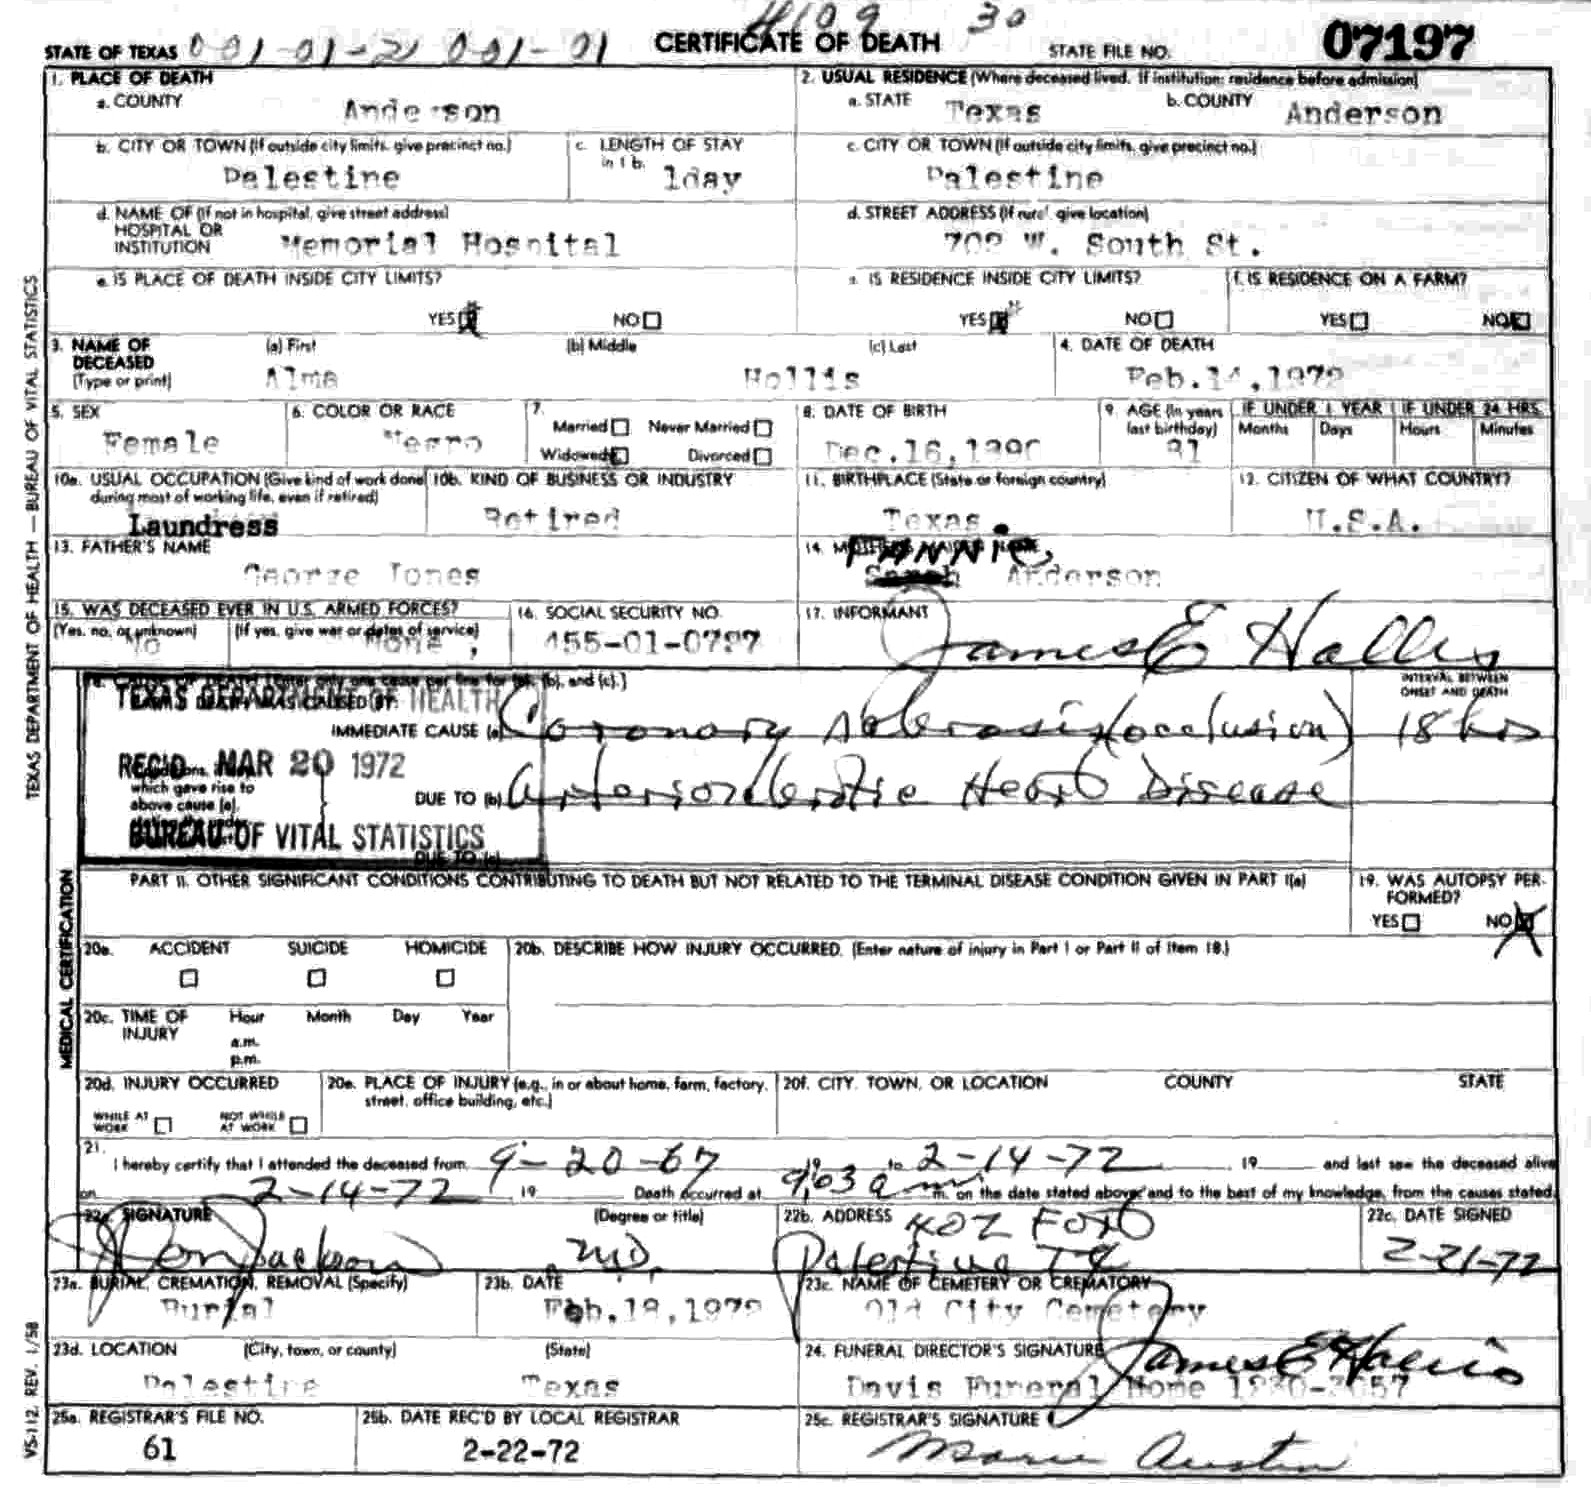 4109 30
STATE OF TEXAS 001-01-21 001-01 CERTIFICATE OF DEATH STATE FILE NO. 07197
1. PLACE OF DEATH
a. COUNTY
Anderson
2. USUAL RESIDENCE (Where deceased lived. If institution: residence before admission)
a. STATE Texas b. COUNTY Anderson
b. CITY OR TOWN (If outside city limits, give precinct no.)
Palestine
c. LENGTH OF STAY
in 1 b.
1day
c. CITY OR TOWN (If outside city limits, give precinct no.)
Palestine
d. NAME OF (If not in hospital, give street address)
HOSPITAL OR
INSTITUTION Memorial Hospital
d. STREET ADDRESS (If rural, give location)
702 W. South St.
e. IS PLACE OF DEATH INSIDE CITY LIMITS?
YES NO
e. IS RESIDENCE INSIDE CITY LIMITS?
YES NO
f. IS RESIDENCE ON A FARM?
YES NO
3. NAME OF
DECEASED
(Type or print)
(a) First (b) Middle (c) Last
Alma Hollis
4. DATE OF DEATH
Feb.14,1972
5. SEX
Female
6. COLOR OR RACE
Negro
7.
Married Never Married
Widowed Divorced
8. DATE OF BIRTH
Dec.16,1890
9. AGE (In years
last birthday)
81
IF UNDER 1 YEAR IF UNDER 24 HRS.
Months Days Hours Minutes
10a. USUAL OCCUPATION (Give kind of work done
during most of working life, even if retired)
Laundress
10b. KIND OF BUSINESS OR INDUSTRY
Retired
11. BIRTHPLACE (State or foreign country)
Texas.
12. CITIZEN OF WHAT COUNTRY?
U.S.A.
13. FATHER'S NAME
George Jones
14. MOTHER'S MAIDEN NAME
FANNIE,
Sarah Anderson
15. WAS DECEASED EVER IN U.S. ARMED FORCES?
(Yes, no, or unknown) (If yes, give war or dates of service)
No None
16. SOCIAL SECURITY NO.
455-01-0727
17. INFORMANT
James E Hollis
18. CAUSE OF DEATH (Enter only one cause per line for (a), (b), and (c).]
INTERVAL BETWEEN
ONSET AND DEATH
TEXAS DEPARTMENT OF HEALTH
DEATH WAS CAUSED BY:
IMMEDIATE CAUSE (a) Coronary Sclerosis (occlusion) 18 hrs
REC'D MAR 20 1972
Conditions,
which gave rise to
above cause (a),
DUE TO (b) Arteriosclerotic Heart Disease
BUREAU OF VITAL STATISTICS
DUE TO (c)
PART II. OTHER SIGNIFICANT CONDITIONS CONTRIBUTING TO DEATH BUT NOT RELATED TO THE TERMINAL DISEASE CONDITION GIVEN IN PART I(a)
19. WAS AUTOPSY PER-
FORMED?
YES NO
20a. ACCIDENT SUICIDE HOMICIDE
20b. DESCRIBE HOW INJURY OCCURRED. (Enter nature of injury in Part I or Part II of Item 18.)
20c. TIME OF
INJURY
Hour Month Day Year
a.m.
p.m.
20d. INJURY OCCURRED
WHILE AT
WORK
NOT WHILE
AT WORK
20e. PLACE OF INJURY (e.g., in or about home, farm, factory,
street, office building, etc.)
20f. CITY, TOWN, OR LOCATION COUNTY STATE
21.
I hereby certify that I attended the deceased from 9-20-67 19 to 2-14-72, 19 and last saw the deceased alive
on 2-14-72, 19 Death occurred at m. on the date stated above, and to the best of my knowledge, from the causes stated.
22a. SIGNATURE (Degree or title)
Jackson MD.
22b. ADDRESS
Palestine TX
22c. DATE SIGNED
2-21-72
23a. BURIAL, CREMATION, REMOVAL (Specify)
Burial
23b. DATE
Feb.18,1972
23c. NAME OF CEMETERY OR CREMATORY
Old City Cemetery
23d. LOCATION (City, town, or county) (State)
Palestine Texas
24. FUNERAL DIRECTOR'S SIGNATURE
James E Harris
Davis Funeral Home
25a. REGISTRAR'S FILE NO.
61
25b. DATE REC'D BY LOCAL REGISTRAR
2-22-72
25c. REGISTRAR'S SIGNATURE
Marie Austin
TEXAS DEPARTMENT OF HEALTH — BUREAU OF VITAL STATISTICS
MEDICAL CERTIFICATION
VS-112. REV. 1/58